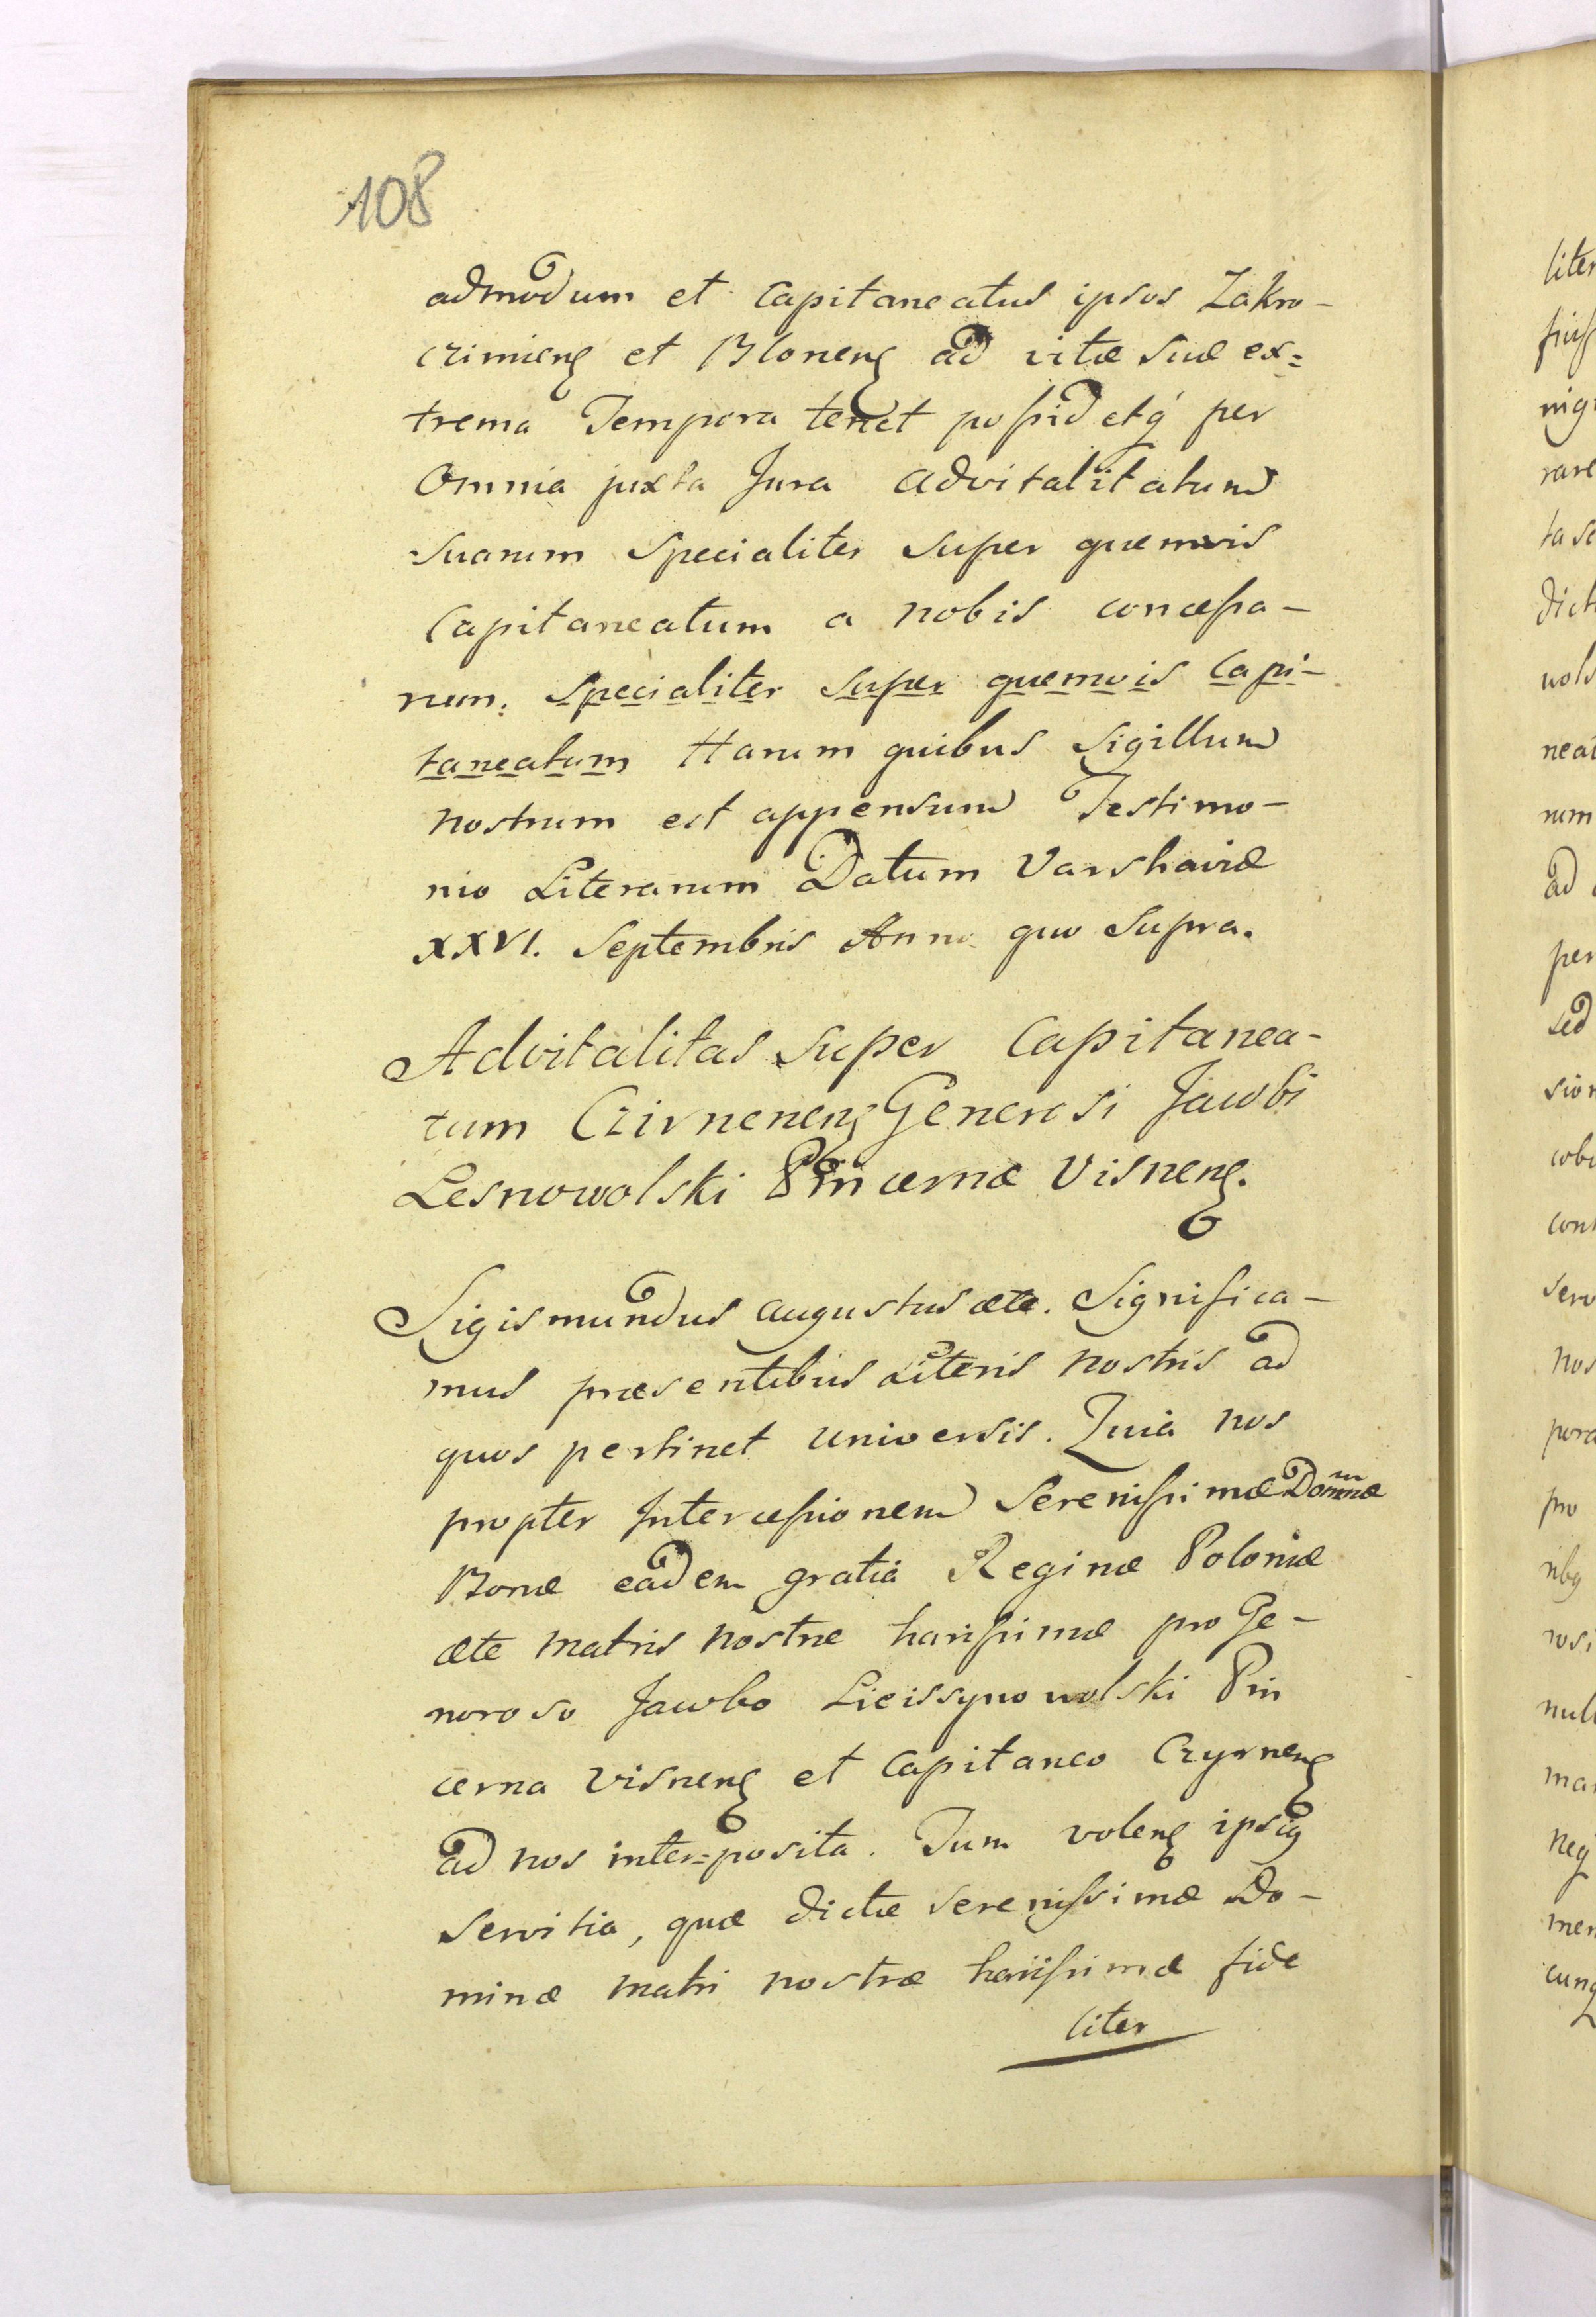 108
admodum et Capitaneatus ipsos Zakro-
czimieng et Bloneng ad vitæ suæ ex=
trema Tempora tenet possidetq́ per
Omnia juxta Jura advitalitatum
suarum Specialiter super quemvis
Capitaneatum a nobis concessa-
rum. Specialiter super quemvis Capi-
taneatum Harum quibus Sigillum
nostrum est appensum Testimo-
nio Literarum Datum Varshaviæ
XXVI. Septembris Anno quo supra.
Advitalitas super Capitanea-
tum Czirneneng Generosi Jacobi
Lesnowolski Pincernæ Visneng.
Sigismundus augustus ætc. Significa-
mus præsentibus Literis nostris ad
quos pertinet universis. Quia nos
propter Intercessionem Serenissimæ Dominæ
Bonæ eadem gratia Reginæ Poloniæ
ætc Matris nostræ harissimæ pro Ge-
noroso Jacobo Lieissynowolski Pin
cerna Visneng et Capitaneo Czyrneng
ad nos inter=posita. Tum voleng ipsig
servitia, quæ dictæ serenissimæ Do-
minæ Matri nostræ harissimæ fide
liter
liter
nig
rare
ta se
dict
wols
neat
rum
ad
per
sed
sion
cobo
con
serv
nos
pora
pro
ribg
rosi
null
mar
neq
men
cunq